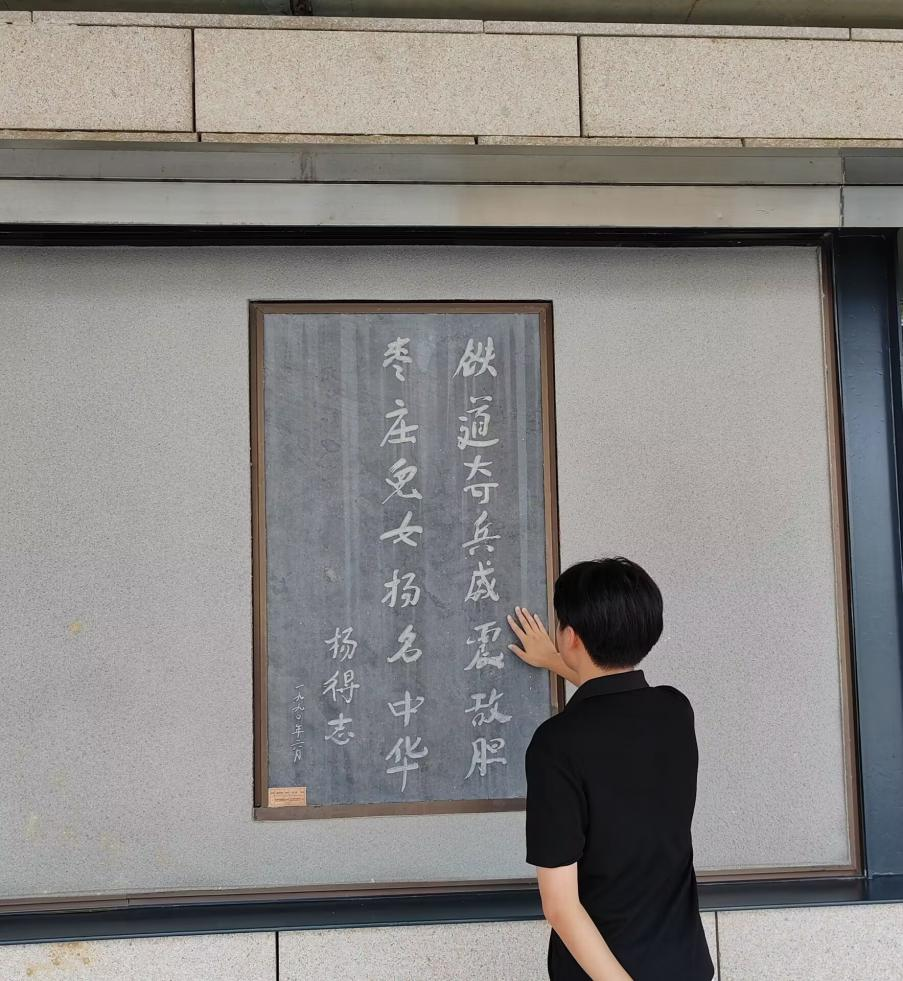 铁道奇兵威震敌胆
枣庄儿女扬名中华
杨得志
一九九〇年二月